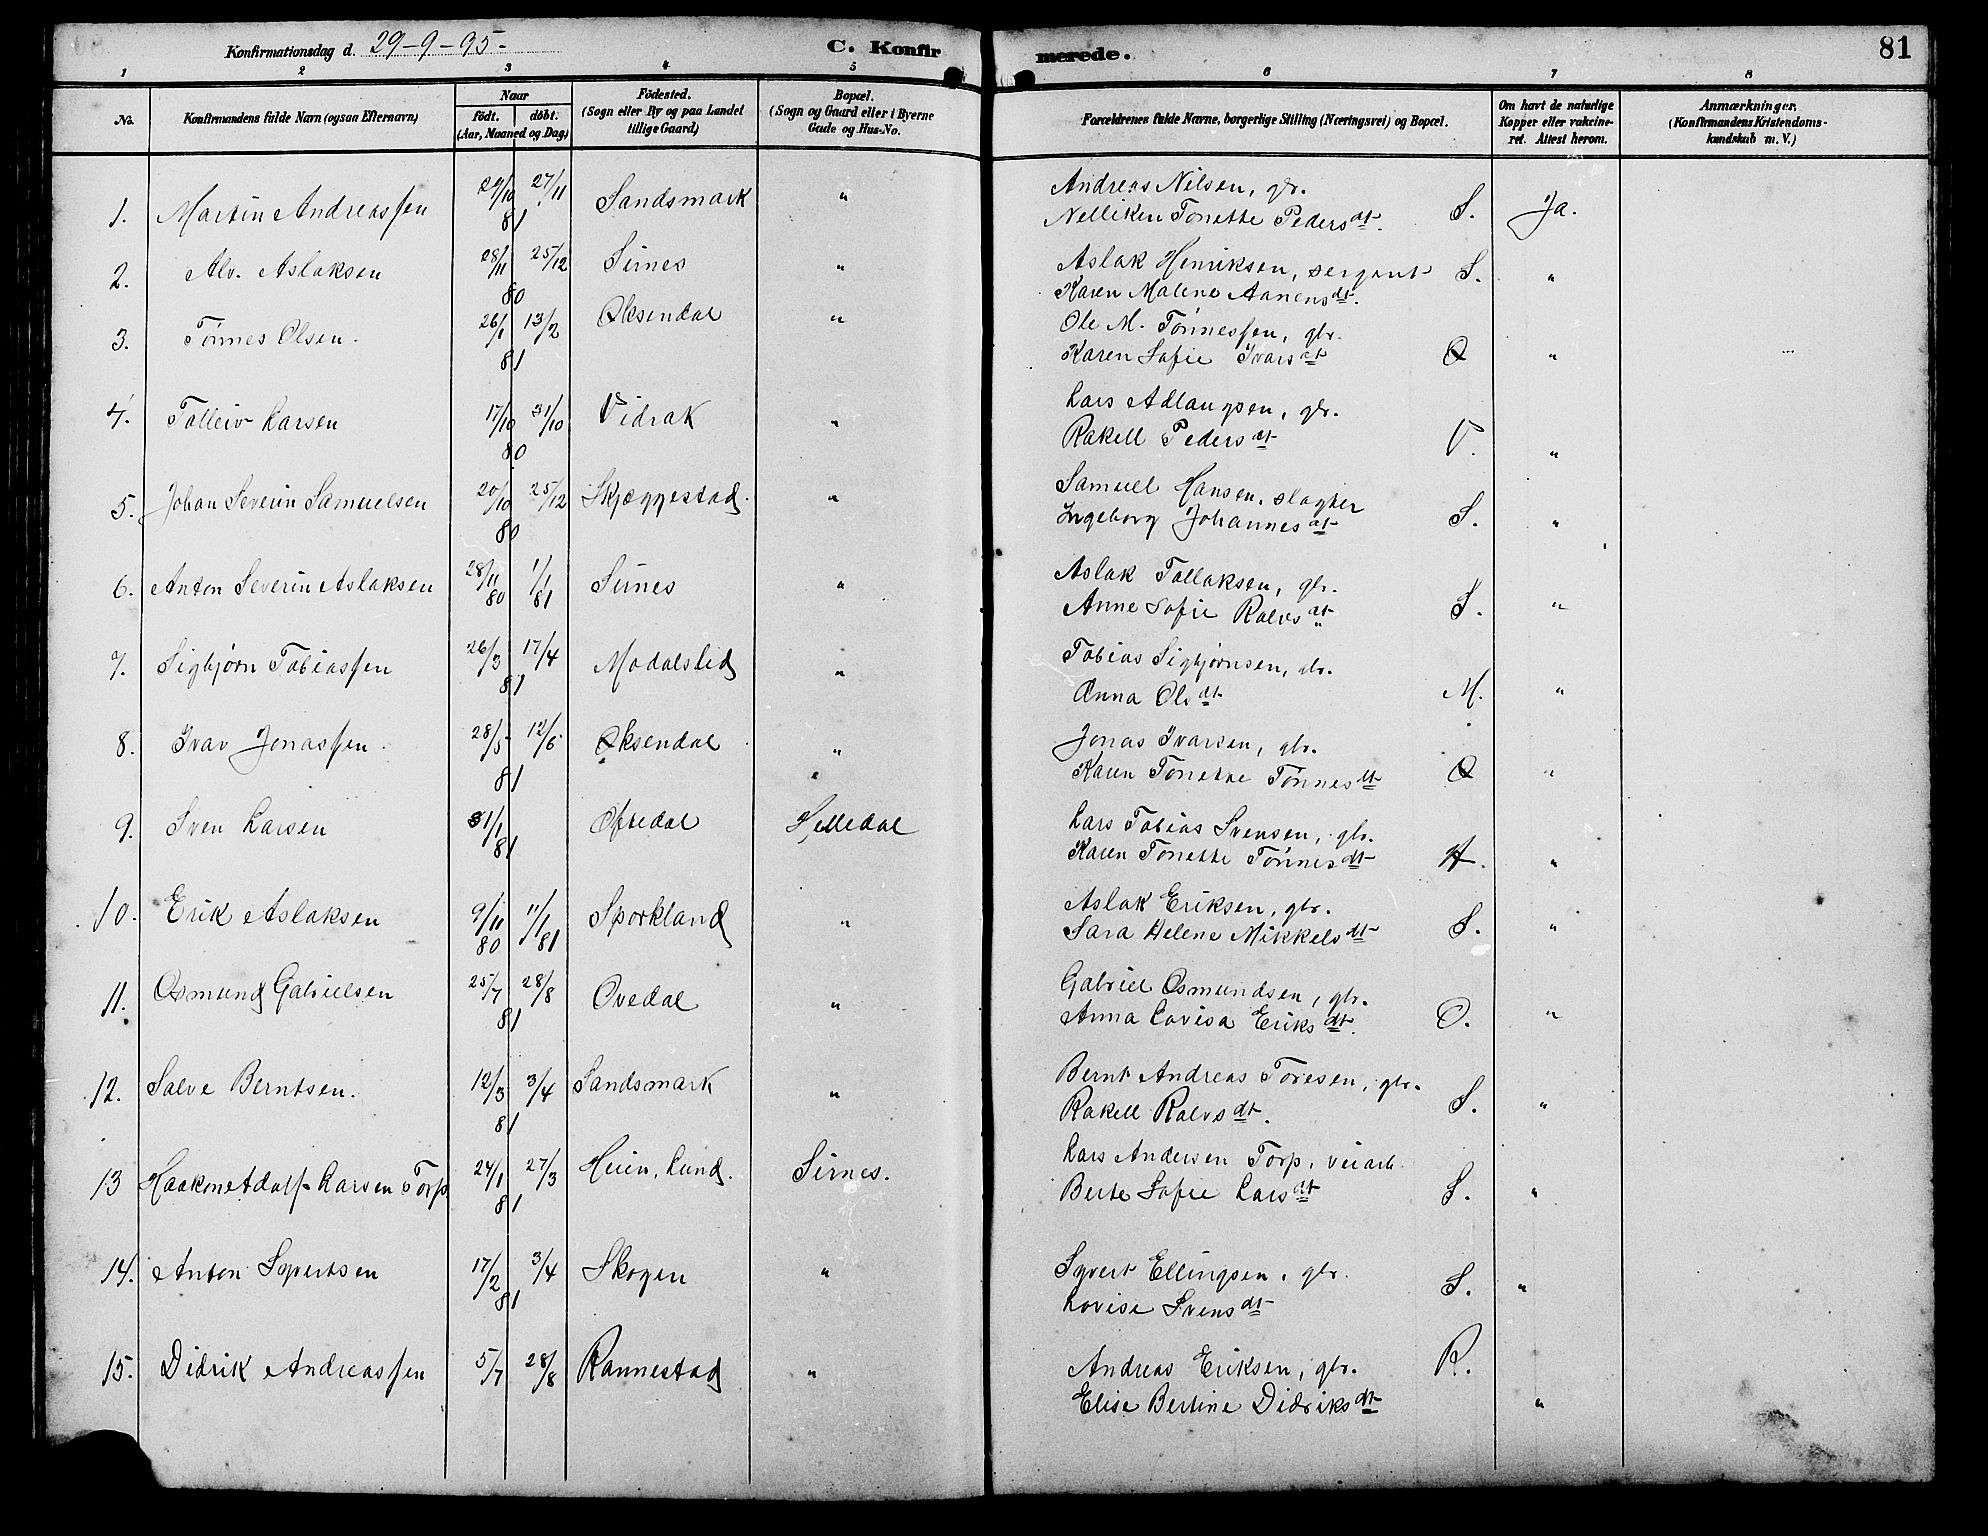 Konfirmationsdag d. 29-9-95- C. Konfirmerede. 81
1 2 3 4 5 6 7 8
No. Konfirmandens fulde Navn (ogsaa Efternavn) Naar født. døbt. (Aar, Maaned og Dag) Fødested. (Sogn eller By og paa Landet tillige Gaard) Bopæl. (Sogn og Gaard eller i Byerne Gade og Hus-No. Forældrenes fulde Navne, borgerlige Stilling (Næringsvei) og Bopæl. Om havt de naturlige Kopper eller vakcineret. Attest herom. Anmærkninger. (Konfirmandens Kristendomskundskab m. V.)
1. Martin Andreassen 29/10 27/11 81 Sandsmark " Andreas Nilsen, gbr.
Nelliken Tonette Pedersdt. S. Ja.
2. Alv. Aslaksen 28/11 25/12 80 Sirnes " Aslak Henriksen, sergant
Karen Malene Aanensdt. S. "
3. Tønnes Olsen. 26/1 13/2 81 Øksendal " Ole M. Tønnessen, gbr.
Karen Sofie Ivarsdt Ø "
4. Tolleiv Larsen 17/10 31/10 80 Vidrak " Lars Adlaugsen, gbr.
Rakell Pedersdt V. "
5. Johan Severin Samuelsen 20/10 25/12 80 Skjeggestad. " Samuel Hansen, slagter
Ingeborg Johannesdt S. "
6. Anton Severin Aslaksen 28/11 80 1/1 81 Sirnes " Aslak Tollaksen, gbr.
Anne Sofie Ralvsdt S. "
7. Sigbjørn Tobiassen 26/3 17/4 81 Modalslid " Tobias Sigbjørnsen, gbr.
Anna Olsdt M. "
8. Ivar Jonassen. 28/5 12/6 81 Øksendal " Jonas Ivarsen, gbr.
Karen Tonette Tønnesdt Ø "
9. Sven Larsen 31/1 81 Oftedal Helledal Lars Tobias Svensen, gbr.
Karen Tonette Tønnesdt H. "
10. Erik Aslaksen 9/11 80 11/1 81 Sporkland " Aslak Eriksen, gbr.
Sara Helene Mikkelsdt S. "
11. Osmund Gabrielsen 25/7 28/8 81 Ovedal " Gabriel Osmundsen, gbr.
Anna Lovisa Eriksdt. O. "
12. Salve Berntsen. 12/3 3/4 81 Sandsmark " Bernt Andreas Toresen, gbr.
Rakell Ralvsdt. S. "
13 Haakon Adolf Larsen Torp 24/1 27/3 81 Heien, Lund. Sirnes. Lars Andersen Torp, veiarb.
Berte Sofie Larsdt S. "
14. Anton Syvertsen 17/2 3/4 81 Skogen " Syvert Ellingsen, gbr.
Lovise Svensdt S. "
15. Didrik Andreassen 5/7 28/8 Rannestad " Andreas Eriksen, gbr. R.
Elise Bertine Didriksdt "